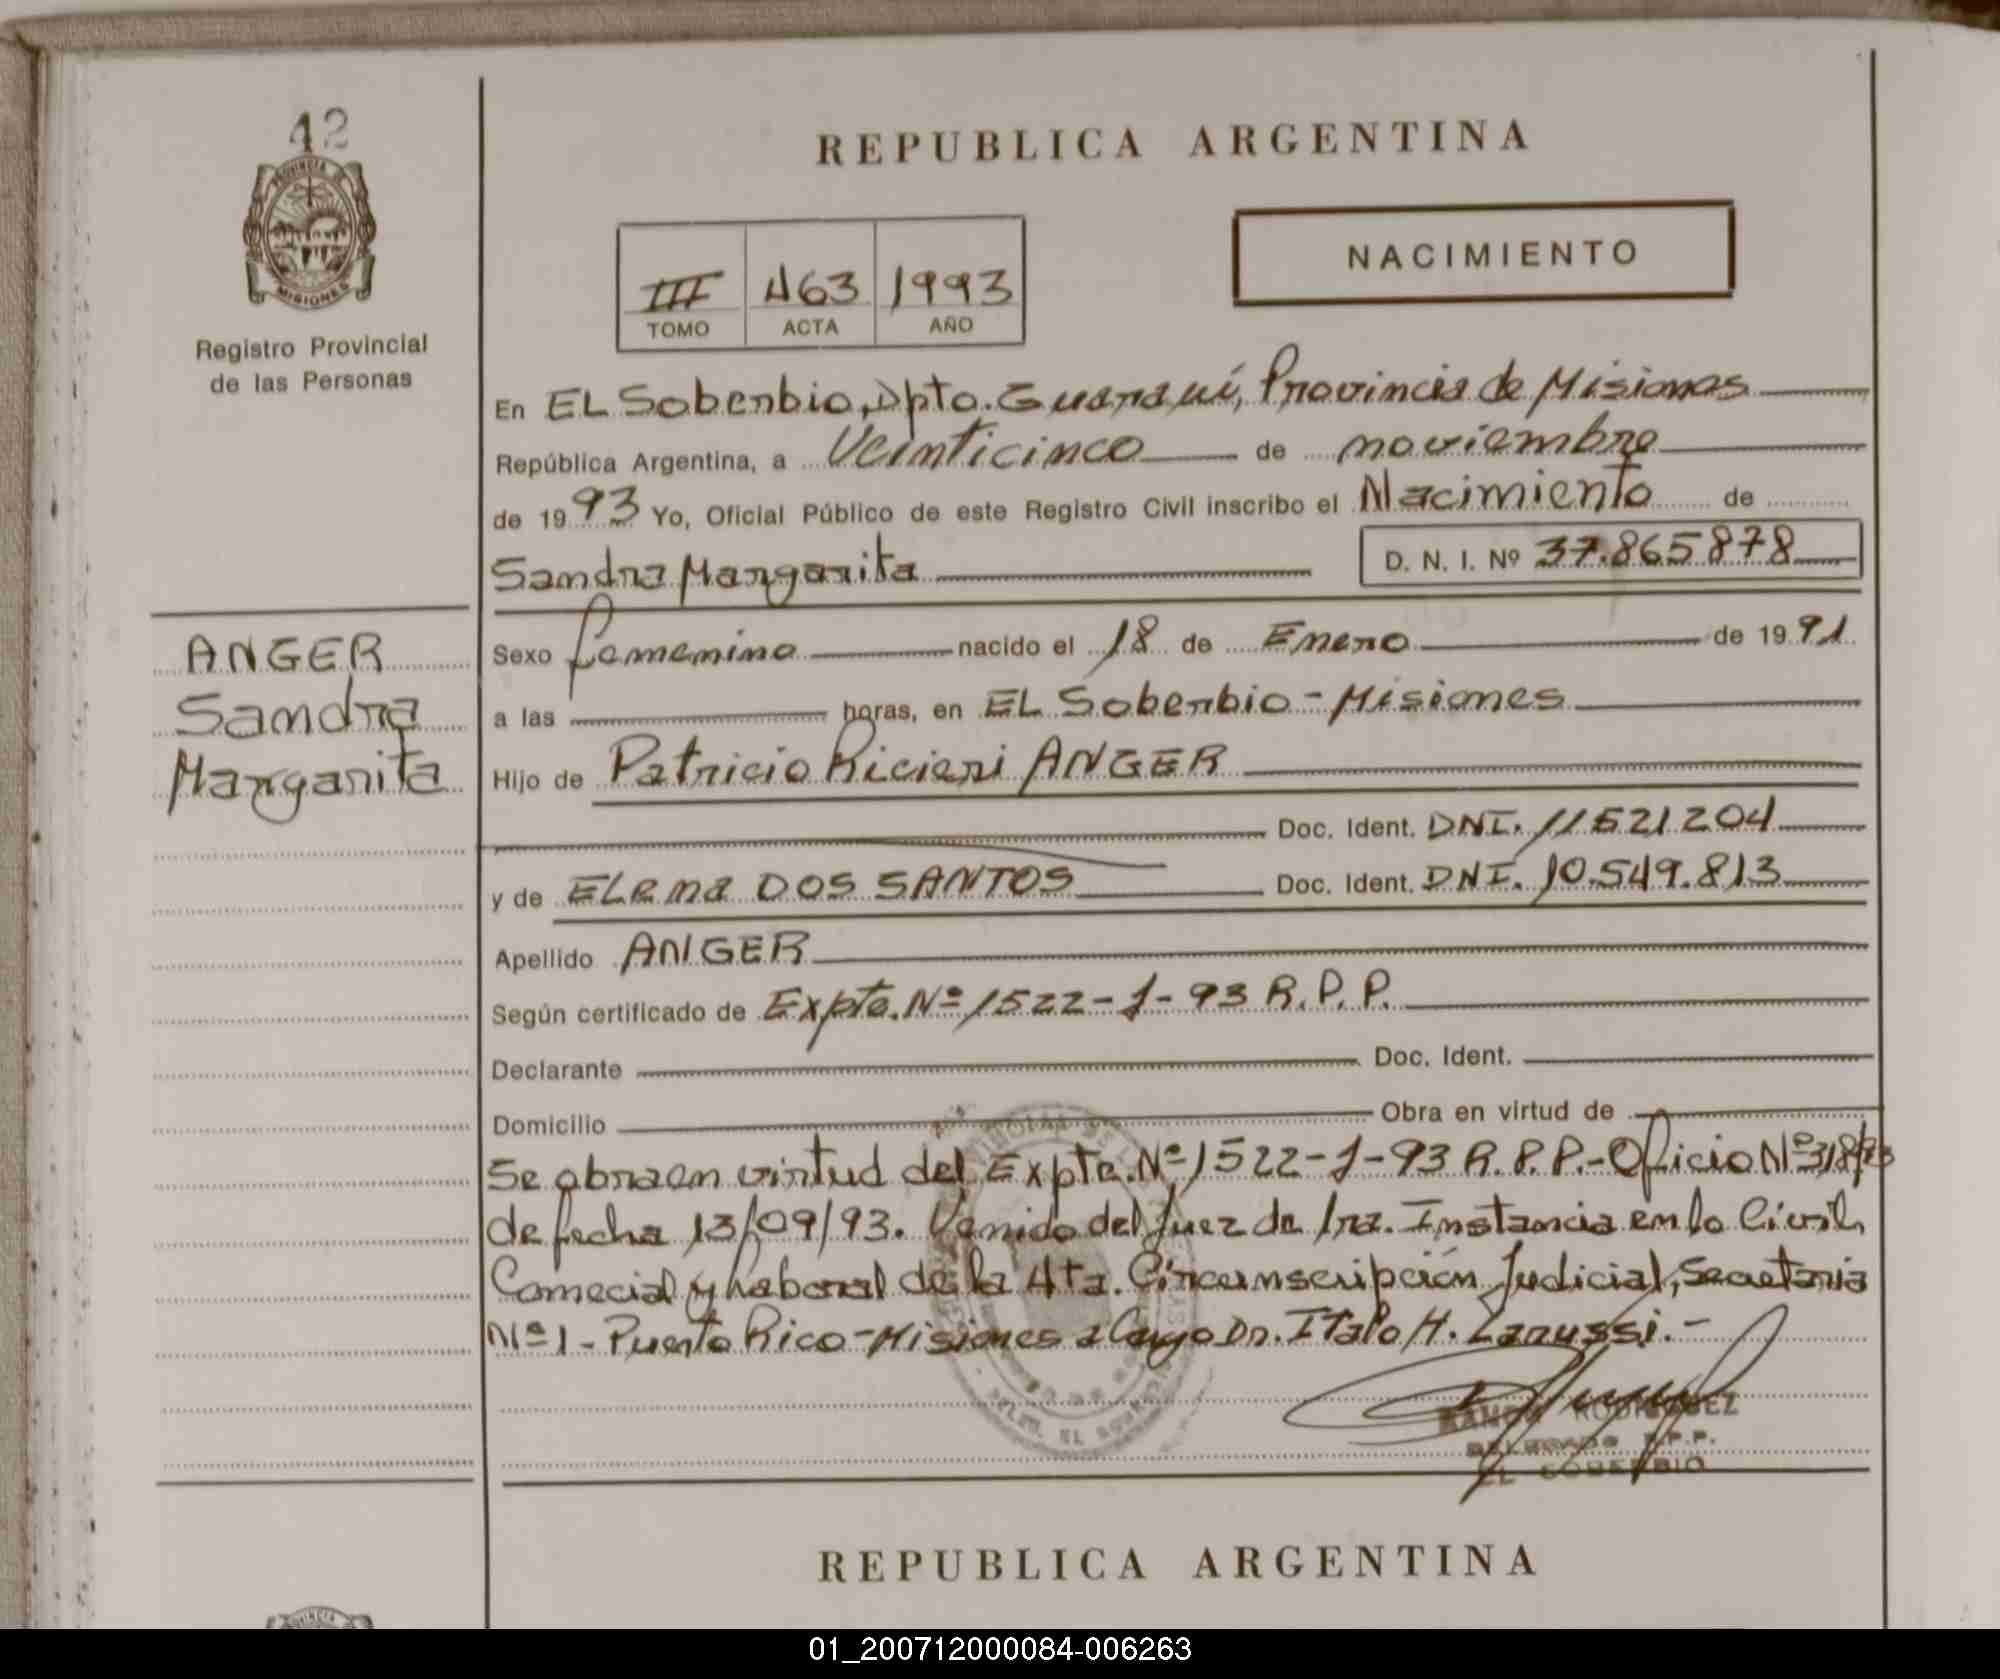 42
PROVINCIA DE
MISIONES
Registro Provincial
de las Personas
REPUBLICA ARGENTINA
NACIMIENTO
III 463 1993
TOMO ACTA AÑO
En EL Soberbio, Dpto. Guaraní, Provincia de Misiones
República Argentina, a Veinticinco de noviembre
de 1993 Yo, Oficial Público de este Registro Civil inscribo el Nacimiento de
Sandra Margarita D. N. I. Nº 37.865878
ANGER
Sandra
Margarita
Sexo femenino nacido el 18 de Enero de 1991
a las horas, en EL Soberbio - Misiones
Hijo de Patricio Ricieri ANGER
Doc. Ident. DNI. 11521204
y de ELena DOS SANTOS Doc. Ident. DNI. 10.549.813
Apellido ANGER
Según certificado de Expte. Nº 1522-J-93 R.P.P.
Declarante Doc. Ident.
Domicilio Obra en virtud de
Se obra en virtud del Expte. Nº 1522-J-93 R.P.P.- Oficio Nº 318/93
de fecha 13/09/93. Venido del Juez de 1ra. Instancia en lo Civil,
Comecial y Laboral de la 4ta. Circunscripción Judicial, Secretaria
Nº 1 - Puerto Rico - Misiones a Cargo Dr. Italo H. Zarussi. -
RODRIGUEZ
DELEGADO R.P.P.
EL SOBERBIO
REPUBLICA ARGENTINA
01_200712000084-006263